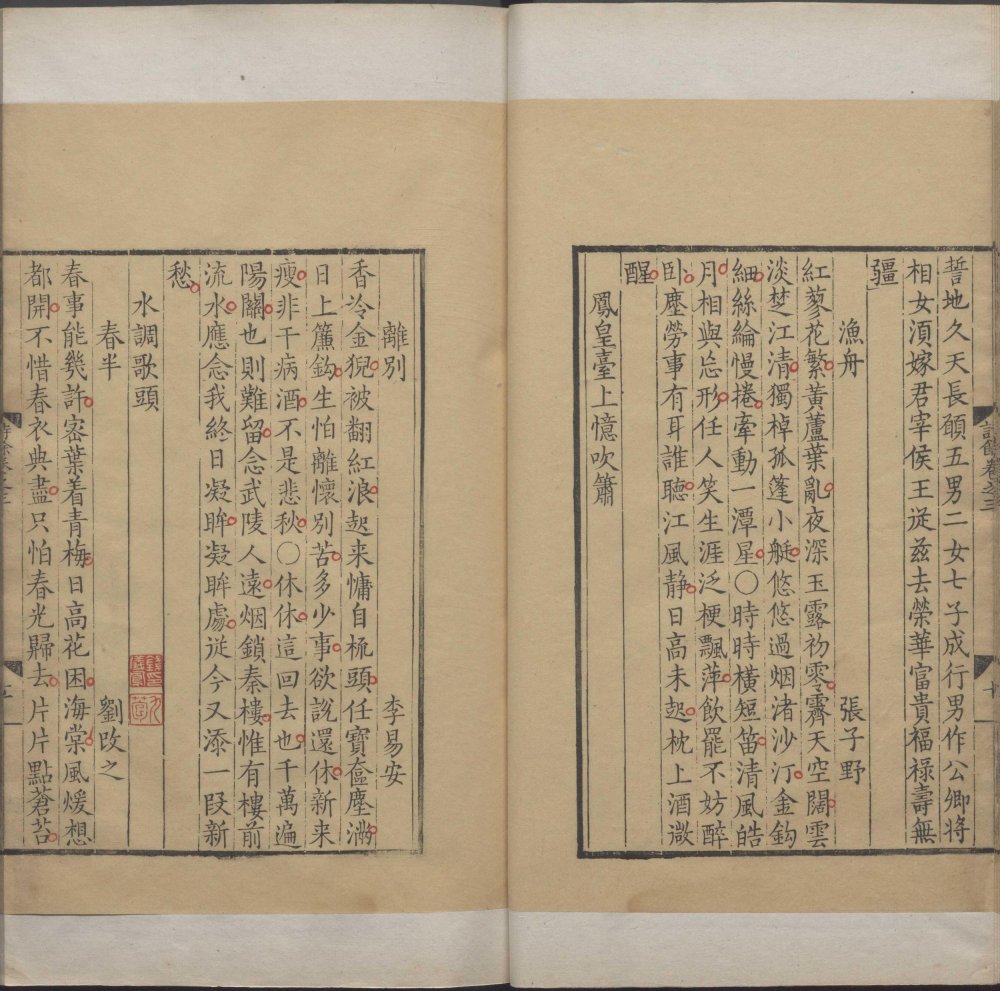 誓地久天長願五男二女七子成行男作公卿將
相女湏嫁君宰侯王従兹去榮華富貴福禄壽無
疆
漁舟 張子野
紅蓼花繁黄蘆葉亂夜深玉露初零霽天空闊雲
淡楚江清獨棹孤篷小艇悠悠過烟渚沙汀金鈎
細絲綸慢捲牽動一潭星〇時時橫短笛清風皓
月相與忘形任人笑生涯泛梗飄萍飲罷不妨醉
卧塵勞事有耳誰聽江風静日高未起枕上酒微
醒
鳳皇臺上憶吹簫
離別 李易安
香冷金猊被翻紅浪起来慵自梳頭任寶奩塵滿
日上簾鈎生怕離懷別苦多少事欲說還休新来
瘦非干病酒不是悲秋〇休休這回去也千萬遍
陽關也則難留念武陵人遠烟鎖秦樓惟有樓前
流水應念我終日凝眸凝眸處従今又添一段新
愁
水調歌頭
春半 劉改之
春事能幾許密葉着青梅日高花困海棠風煖想
都開不惜春衣典盡只怕春光歸去片片點蒼苔